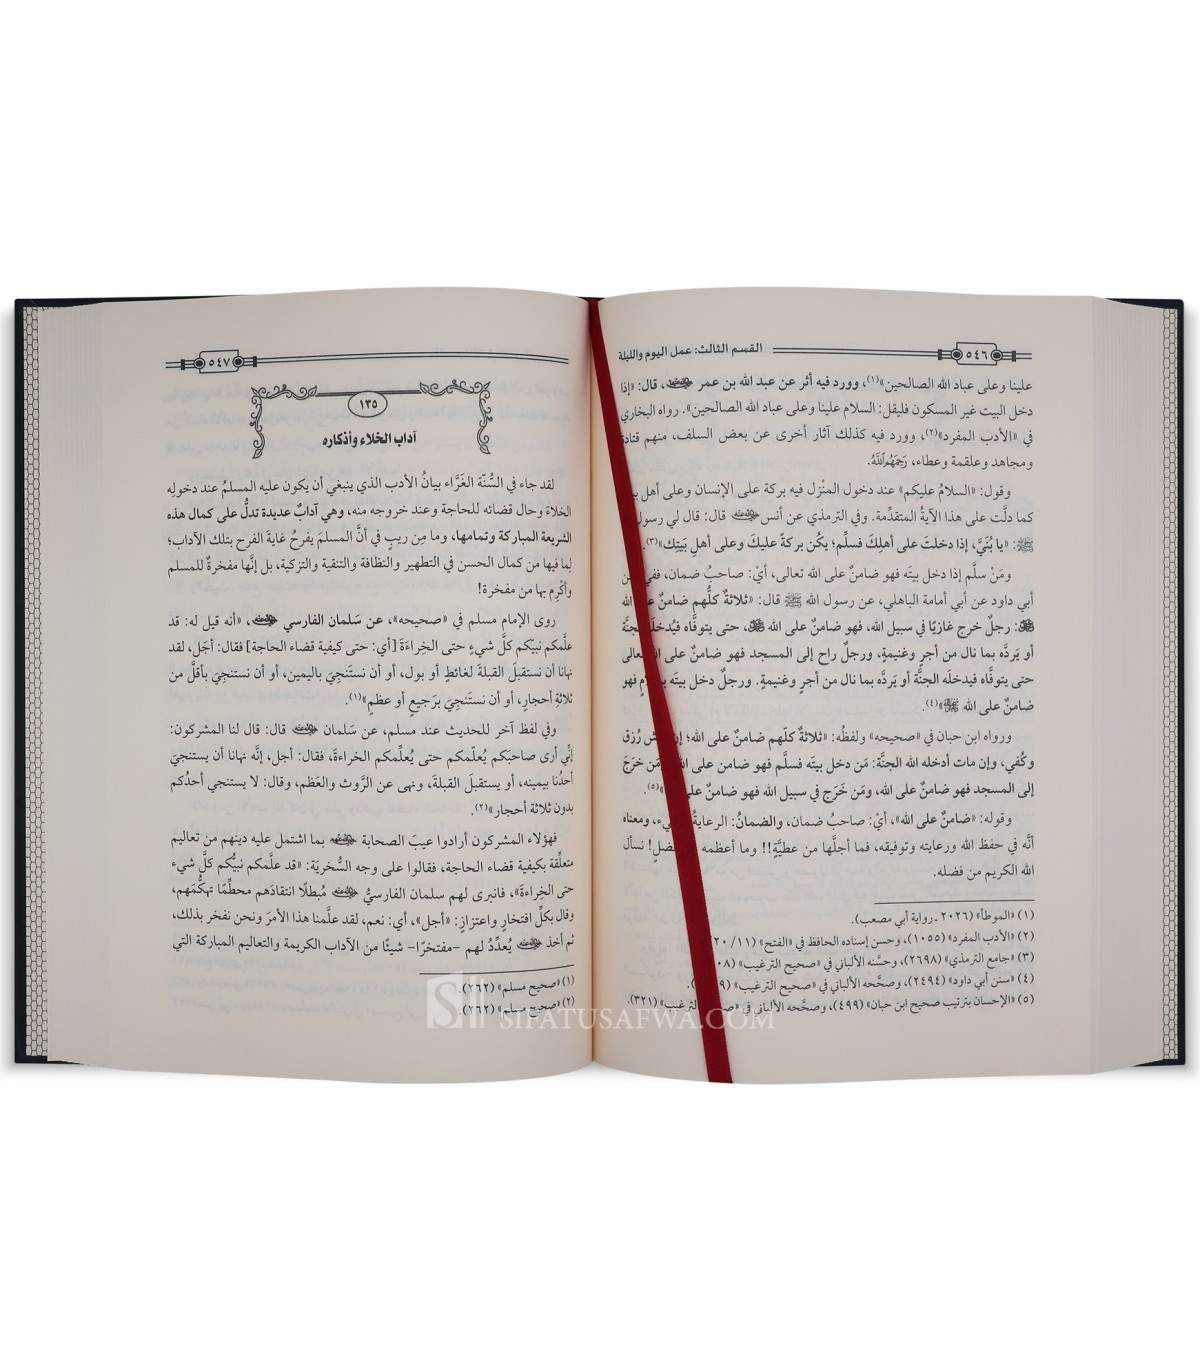 ٥٤٦
القسم الثالث: عمل اليوم والليلة
علينا وعلى عباد الله الصالحين»(١)، وورد فيه أثر عن عبد الله بن عمر ، قال: «إذا
دخل البيت غير المسكون فليقل: السلام علينا وعلى عباد الله الصالحين». رواه البخاري
في «الأدب المفرد»(٢)، وورد فيه كذلك آثار أخرى عن بعض السلف، منهم قتادة
ومجاهد وعلقمة وعطاء، رَحِمَهُمُ اللَّهُ.
وقول: «السلامُ عليكم» عند دخول المنْزل فيه بركة على الإنسان وعلى أهل
كما دلَّت على هذا الآيةُ المتقدِّمة. وفي الترمذي عن أنس قال: قال لي رسول
ﷺ: «يا بُنَيَّ، إذا دخلتَ على أهلِكَ فسلِّم؛ يكُن بركةً عليكَ وعلى أهلِ بَيتِك»(٣).
ومَنْ سلَّم إذا دخل بيتَه فهو ضامنٌ على الله تعالى، أيْ: صاحبُ ضمان، ففي
أبي داود عن أبي أمامة الباهلي، عن رسول الله ﷺ قال: «ثلاثةٌ كلُّهم ضامنٌ الله
: رجلٌ خرج غازيًا في سبيل الله، فهو ضامنٌ على الله ، حتى يتوفَّاه فيُدخلَه الجنَّة
أو يَردَّه بما نال من أجرٍ وغنيمةٍ، ورجلٌ راح إلى المسجد فهو ضامنٌ على تعالى
حتى يتوفَّاه فيدخلَه الجنَّة أو يَردَّه بما نال من أجرٍ وغنيمةٍ. ورجلٌ دخل بيتَه فهو
ضامنٌ على الله ﷺ»(٤).
ورواه ابن حبان في «صحيحه» ولفظُه: «ثلاثةٌ كلّهم ضامنٌ على الله؛ رُزق
وكُفي، وإن مات أدخله الله الجنَّة: مَن دخل بيتَه فسلَّم فهو ضامن على مَن خرَجَ
إلى المسجد فهو ضامنٌ على الله، ومَن خَرَج في سبيل الله فهو ضامنٌ على »(٥).
وقوله: «ضامنٌ على الله»، أيْ: صاحبُ ضمان، والضمانُ: الرعايةُ ، ومعناه
أنَّه في حفظ الله ورعايته وتوفيقه، فما أجلَّها من عطيَّةٍ!! وما أعظمه ! نسأل
الله الكريم من فضله.
(١) «الموطأ» (٢٠٢٦ ـ رواية أبي مصعب).
(٢) «الأدب المفرد» (١٠٥٥)، وحسن إسناده الحافظ في «الفتح» (١١/ ٢٠).
(٣) «جامع الترمذي» (٢٦٩٨)، وحسَّنه الألباني في «صحيح الترغيب»
(٤) «سنن أبي داود» (٢٤٩٤)، وصحَّحه الألباني في «صحيح الترغيب»
(٥) «الإحسان بترتيب صحيح ابن حبان» (٤٩٩)، وصحَّحه الألباني في «الترغيب» (٣٢١).
٥٤٧
١٣٥
آداب الخلاء وأذكاره
لقد جاء في السُّنّة الغَرَّاء بيانُ الأدب الذي ينبغي أن يكون عليه المسلمُ عند دخولِه
الخلاءَ وحال قضائه للحاجة وعند خروجه منه، وهي آدابٌ عديدة تدلُّ على كمال هذه
الشريعة المباركة وتمامها، وما مِن ريبٍ في أنَّ المسلمَ يفرحُ غايةَ الفرح بتلك الآداب؛
لِما فيها من كمال الحسن في التطهير والنظافة والتنقية والتزكية، بل إنَّها مفخرةٌ للمسلم
وأكْرِم بها من مفخرة!
روى الإمام مسلم في «صحيحه»، عن سَلمان الفارسي ، «أنه قيل له: قد
علَّمكم نبيّكم كلَّ شيءٍ حتى الخِراءَةَ [أي: حتى كيفية قضاء الحاجة] فقال: أجَل، لقد
نهانا أن نستقبلَ القبلةَ لغائطٍ أو بول، أو أن نستَنجِيَ باليمين، أو أن نستنجِيَ بأقلَّ من
ثلاثةِ أحجارٍ، أو أن نستَنجِيَ برَجيعٍ أو عظمٍ»(١).
وفي لفظ آخر للحديث عند مسلم، عن سَلمان قال: قال لنا المشركون:
إنِّي أرى صاحبَكم يُعلّمكم حتى يُعلِّمكم الخراءةَ، فقال: أجل، إنَّه نهانا أن يستنجيَ
أحدُنا بيمينه، أو يستقبلَ القبلةَ، ونهى عن الرَّوث والعَظم، وقال: لا يستنجي أحدُكم
بدون ثلاثة أحجار»(٢).
فهؤلاء المشركون أرادوا عيبَ الصحابة بما اشتمل عليه دينهم من تعاليم
متعلِّقة بكيفية قضاء الحاجة، فقالوا على وجه السُّخريَة: «قد علَّمكم نبيُّكم كلَّ شيء
حتى الخِراءةَ»، فانبرى لهم سلمان الفارسيُّ مُبطلًا انتقادَهم محطِّمًا تهكُّمَهم،
وقال بكلِّ افتخارٍ واعتزازٍ: «أجل»، أي: نعم، لقد علَّمنا هذا الأمرَ ونحن نفخر بذلك،
ثم أخذ يُعدِّدُ لهم –مفتخرًا– شيئًا من الآداب الكريمة والتعاليم المباركة التي
(١) «صحيح مسلم» (٢٦٢).
(٢) «صحيح مسلم» (٢٦٢).
SIFATUSAFWA.COM